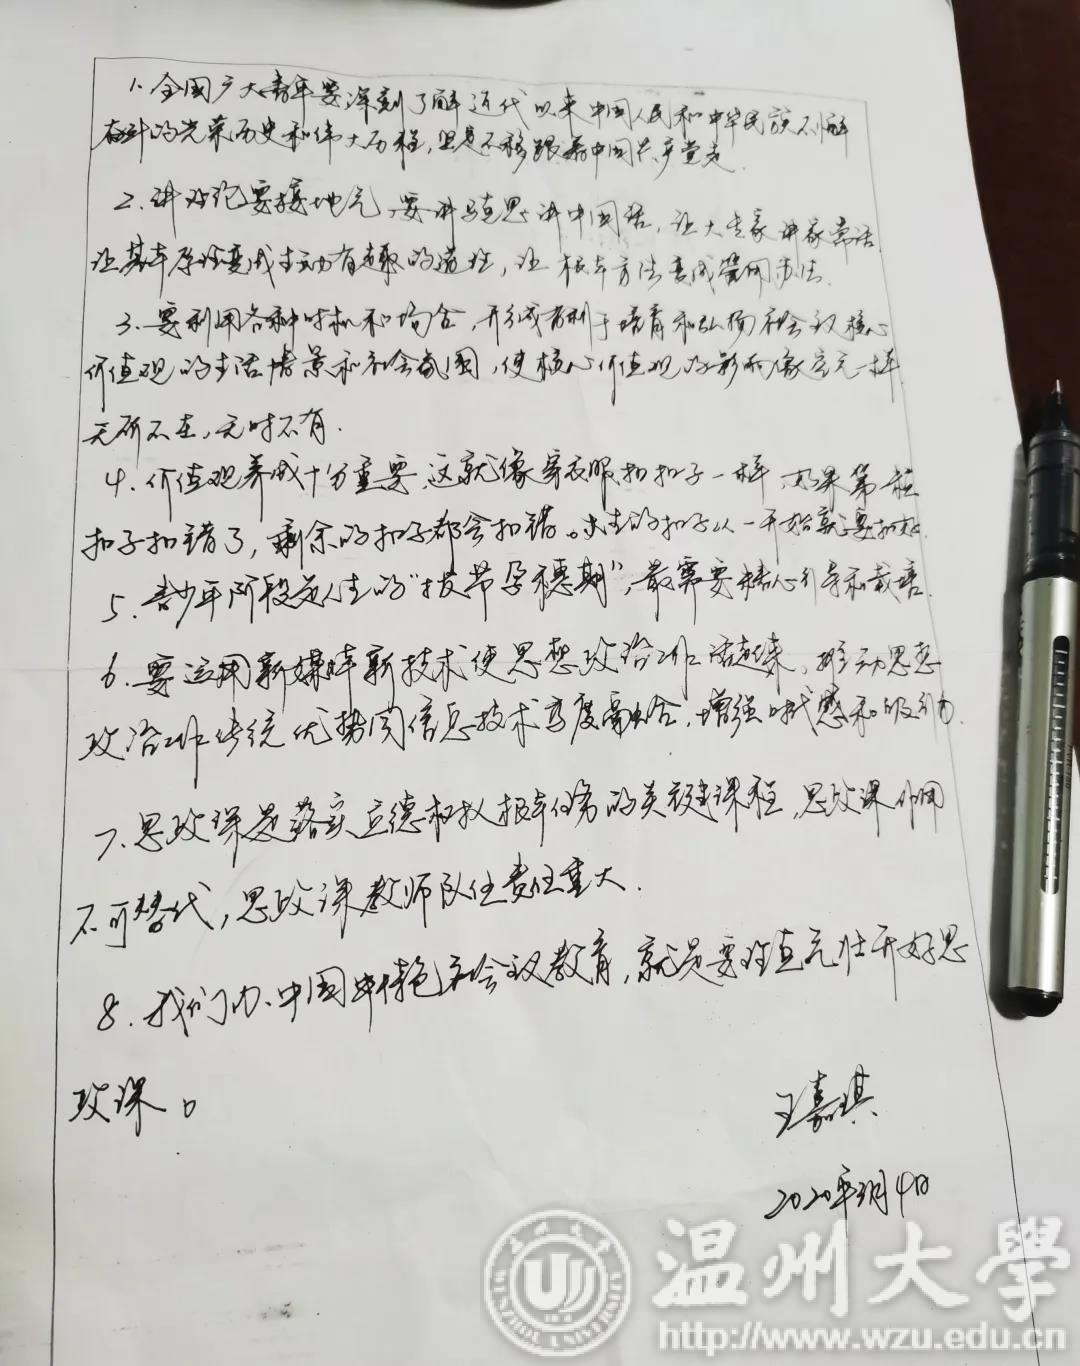 1. 全国广大青年要深刻了解近代以来中国人民和中华民族不懈
奋斗的光荣历史和伟大历程，坚定不移跟着中国共产党走.
2. 讲政治要接地气，要讲马克思讲中国话，让大专家讲家常话
让基本原理变成生动有趣的道理，让根本方法变成管用办法.
3. 要利用各种时机和场合，形成有利于培育和弘扬社会主义核心
价值观的生活情景和社会氛围，使核心价值观的影响像空气一样
无所不在，无时不有.
4. 价值观养成十分重要，这就像穿衣服扣扣子一样，如果第一粒
扣子扣错了，剩余的扣子都会扣错。人生的扣子从一开始就要扣好.
5. 青少年阶段是人生的“拔节孕穗期”，最需要精心引导和栽培.
6. 要运用新媒体新技术使思想政治工作活起来，推动思想
政治工作传统优势同信息技术高度融合，增强时代感和吸引力.
7. 思政课是落实立德树人根本任务的关键课程，思政课作用
不可替代，思政课教师队伍责任重大.
8. 我们办中国特色社会主义教育，就是要理直气壮开好思
政课。
王嘉琪
2020年3月4日
温州大学
WENZHOU UNIVERSITY
http://www.wzu.edu.cn